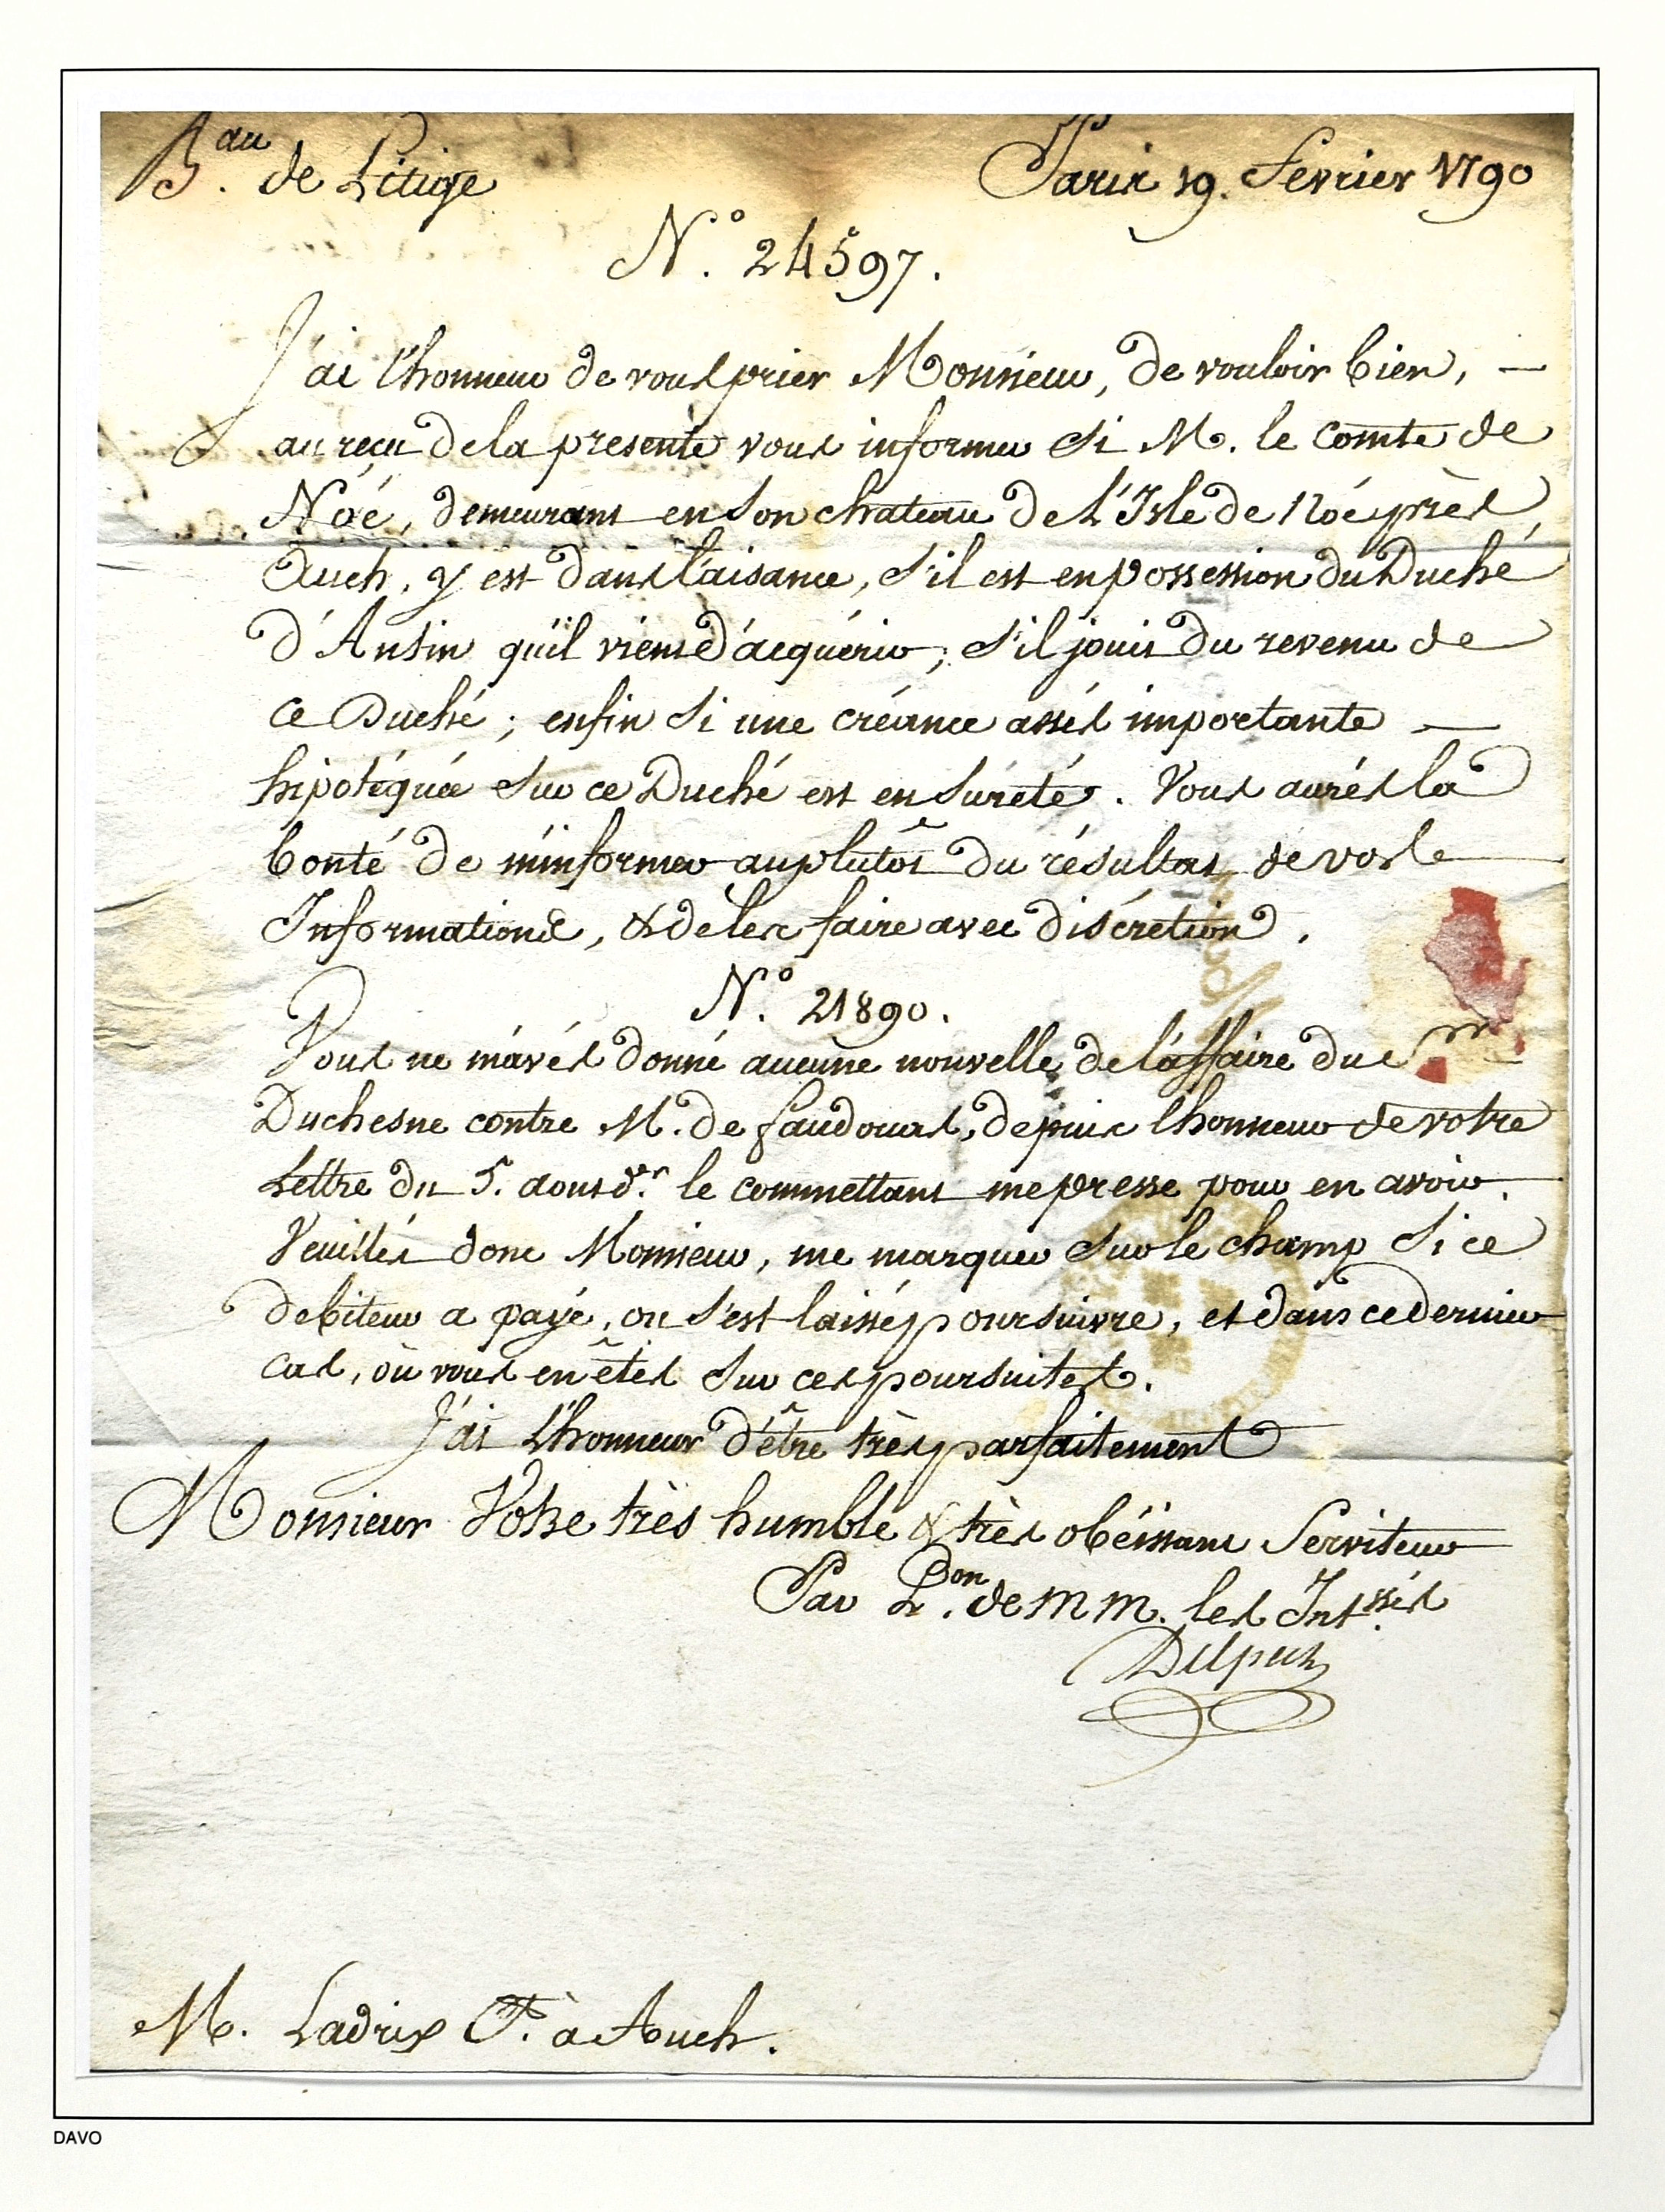 B.au de Litige
Paris 19. Fevrier 1790
N.° 24597.
J'ai l'honneur de vous prier Monsieur, de vouloir bien, —
au reçu de la presente vous informer si M. le comte de
Noé, demeurant en son chateau de L'Isle de Noé près
Auch, y est dans l'aisance, s'il est en possession du Duché
d'Antin qu'il vient d'acquérir; s'il jouit du revenu de
ce Duché; enfin si une créance assés importante —
hipotéquée sur ce Duché est en sureté. Vous aurés la
bonté de m'informer au plutôt du résultat de vos
Informations, & de les faire avec discrétion.
N.° 21890.
Vous ne m'avés donné aucune nouvelle de l'affaire du S
Duchesne contre M. de faudoas, depuis l'honneur de votre
Lettre du 5. aoust d.er le commettant me presse pour en avoir.
Veuillés donc Monsieur, me marquer sur le champ si ce
debiteur a payé, ou s'est laissé poursuivre, et dans ce dernier
cas, où vous en êtes sur ces poursuites.
J'ai L'honneur d'être très parfaitement
Monsieur Votre très humble & très obéissant Serviteur
Par P.on de MM. les Int.ssés
Delpech
M. Ladrix F. à Auch.
DAVO